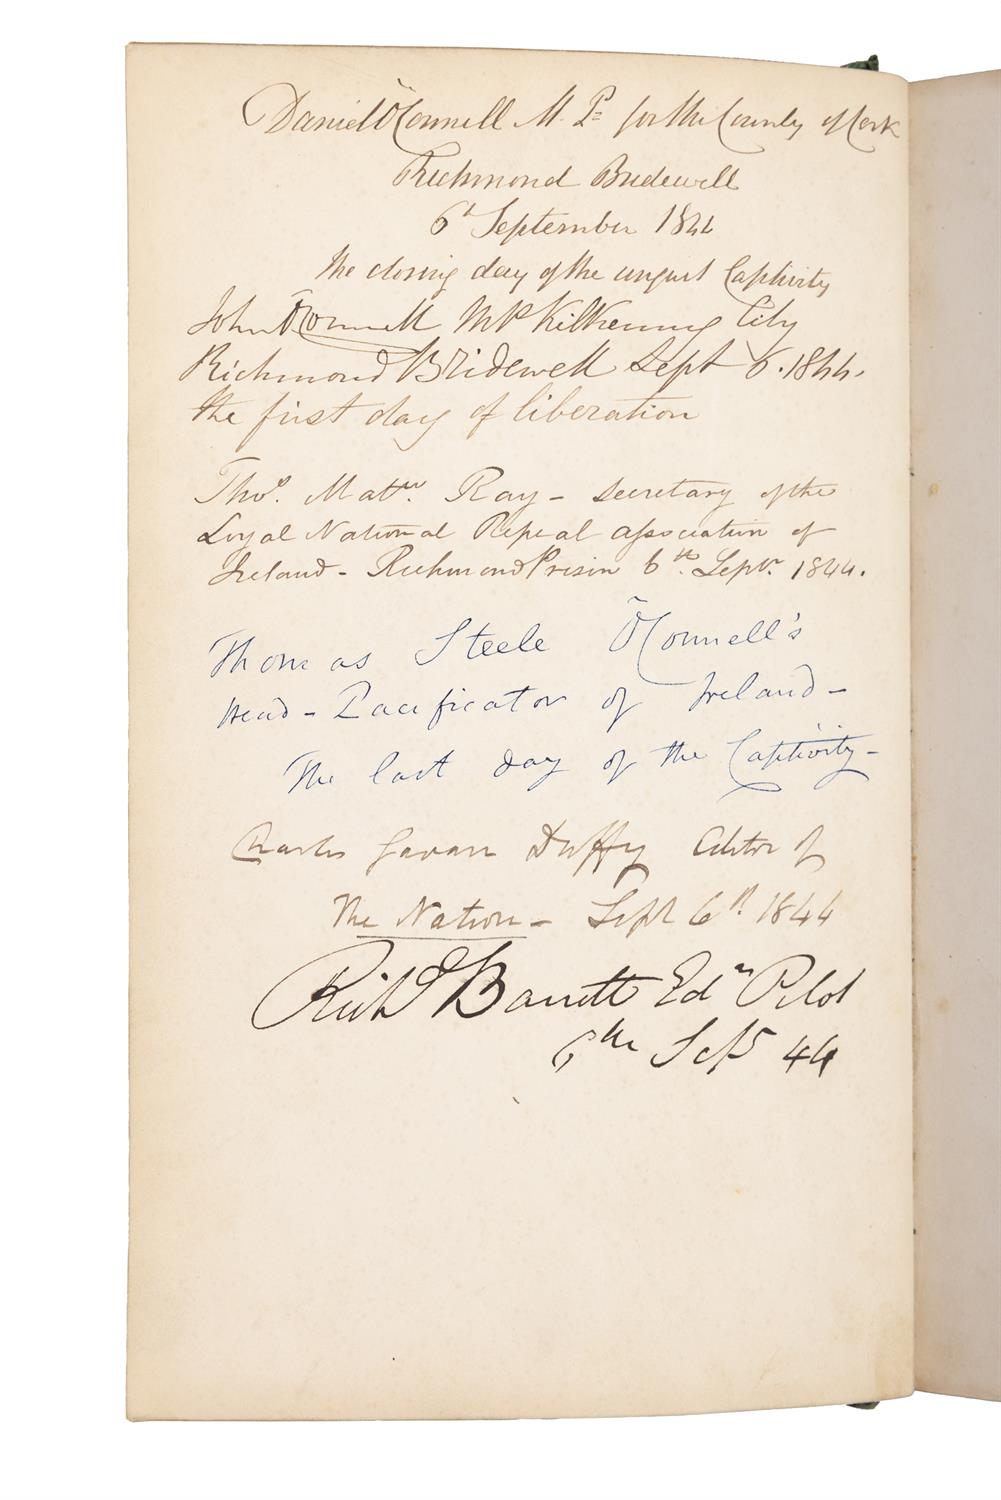 Daniel O'Connell M.P. for the County of Cork
Richmond Bridewell
6th September 1844
The closing day of the unjust Captivity
John O'Connell MP Kilkenny City
Richmond Bridewell Sept 6. 1844.
the first day of liberation
Thos. Mattw. Ray - Secretary of the
Loyal National Repeal association of
Ireland - Richmond Prison 6th. Septr. 1844.
Thomas Steele O'Connell's
Head - Pacificator of Ireland -
The last day of the Captivity -
Charles Gavan Duffy Editor of
The Nation - Sept 6th 1844
Richd Barrett Edr Pilot
6th Sept 44